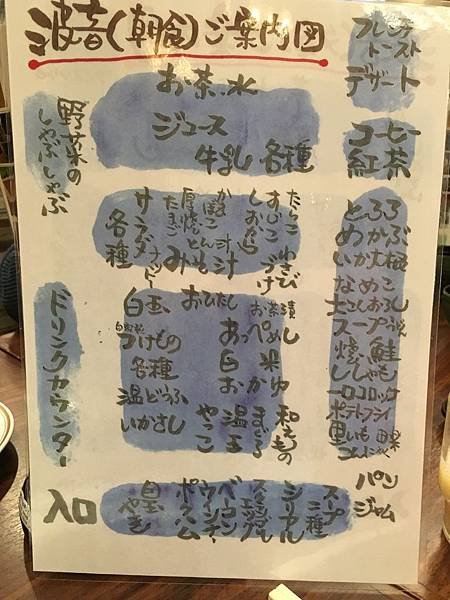 波音(朝食)ご案内図
フレンチ
トースト
デザート
お茶・水
ジュース
牛乳各種
コーヒー
紅茶
野菜の
しゃぶしゃぶ
サラダ
各種
厚焼
たまご
かぼちゃ
とん汁
みそ汁
たらこ
すじこ
しおから
わさび
づけ
とろろ
めかぶ
いか
なめこ
スープ
焼鮭
ししゃも
一口コロッケ
ポテトフライ
里いも
白玉
おひたし
お茶漬
つけもの
各種
あっぺめし
白米
おかゆ
温どうふ
いかさし
やっこ
温玉
まぐろ
和えもの
ドリンクカウンター
入口
目玉
やき
ハム
ウインナー
ベーコン
スクランブル
エッグ
シリアル
スープ
二種
パン
ジャム